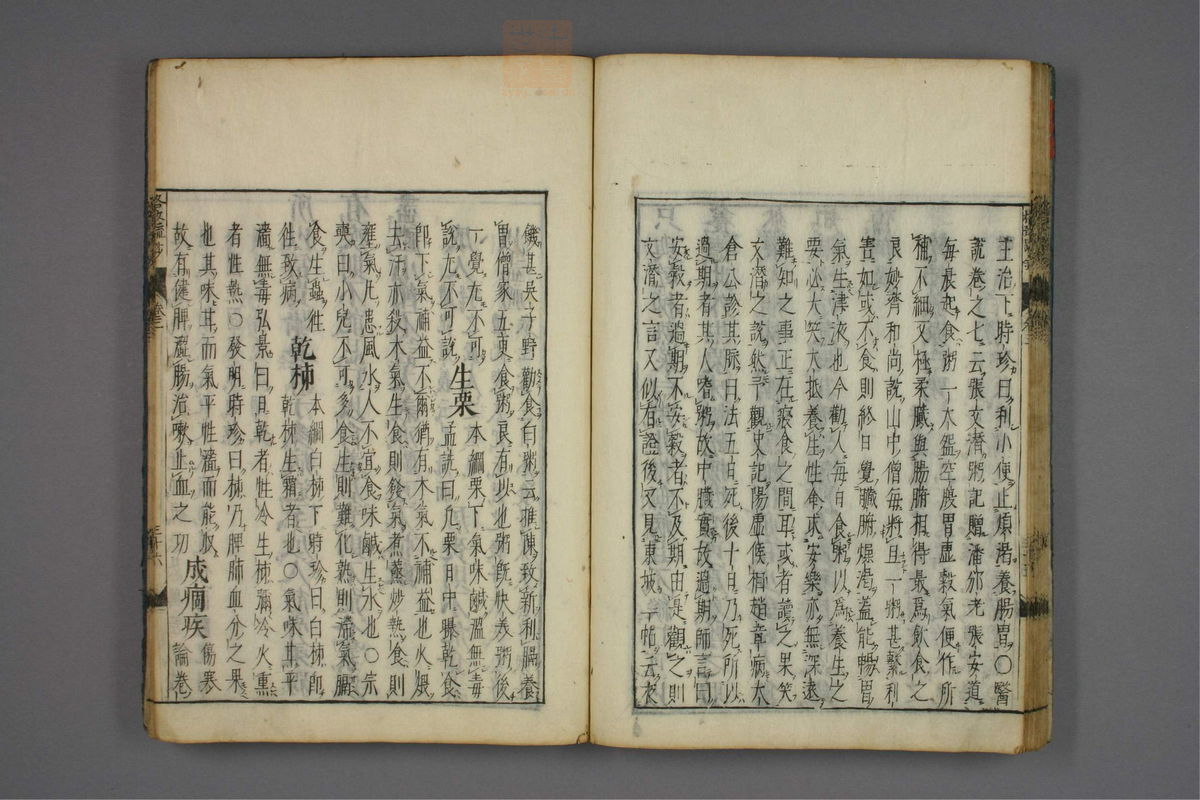 主治下時珍曰利小便止煩渴養腸胃○醫
說卷之七云張文潛粥記贈潘邠老張安道
每晨起食粥一大盌空腹胃虛穀氣便作所
補不細又極柔膩與腸腑相得最爲飲食之
良妙齊和尚說山中僧每將旦一粥甚繫利
害如或不食則終日覺臟腑燥渴蓋能暢胃
氣生津液也今勸人每日食粥以爲養生之
要必大笑大抵養生性命求安樂亦無深遠
難知之事正在寢食之間耳或者讀之果笑
文潛之說然予觀史記陽虛候相趙章病太
倉公診其脉曰法五日死後十日乃死所以
過期者其人嗜粥故中臟實故過期師言曰
安穀者過期不安穀者不及期由是觀之則
文潛之言又似有證後又見東坡一帖云夜
饑甚吳子野勸食白粥云推陳致新利膈養
胃僧家五更食粥良有以也粥既快美粥後
一覺尤不可
說尤不可說 生栗 本綱栗下氣味鹹溫無毒
孟詵曰凡栗日中曝乾食
即下氣補益不爾猶有木氣不補益也火煨
去汗亦殺木氣生食則發氣煮蒸炒熱食則
壅氣凡患風水人不宜食味鹹生水也○宗
奭曰小兒不可多食生則難化熟則滯氣膈
食生蟲往
往致病 乾柿 本綱白柿下時珍曰白柿即
乾柿生霜者也○氣味甘平
濇無毒弘景曰日乾者性冷生柿彌冷火熏
者性熱○發明時珍曰柿乃脾肺血分之果
也其味甘而氣平性濇而能收
故有健脾濇腸治嗽止血之功 成痼疾 傷寒
論卷